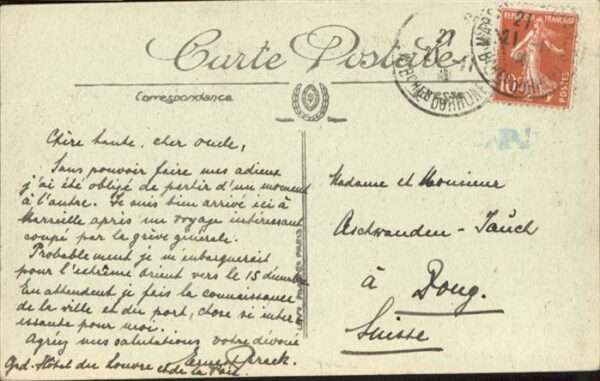 Carte Postale
Correspondance
RÉPUBLIQUE FRANÇAISE
10
POSTES
BCHES DU RHONE
Chère tante, cher oncle,
Sans pouvoir faire mes adieux
j'ai été obligé de partir d'un moment
à l'autre. Je suis bien arrivé ici à
Marseille après un voyage intéressant
coupé par la grève générale.
Probablement je m'embarquerait
pour l'extrême orient vers le 15 décembre
En attendent je fais la connaissance
de la ville et du port, chose si inter-
essante pour moi.
Agréez mes salutations votre dévoué
Grd. Hôtel du Louvre et de la Paix.
Madame et Monsieur
Aschwanden - Jauch
à
Suisse